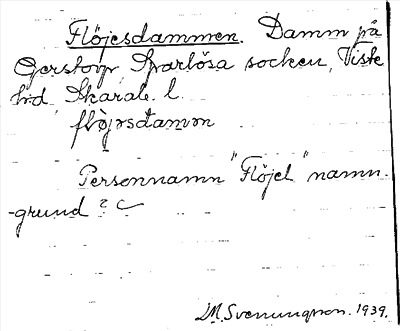 Flöjesdammen. Damm på
Gerstorp, Sparlösa socken, Viste
hd, Skarab. l.
flöjɘsdamm
Personnamn "Flöjel" namn-
-grund?
M. Svenungsson. 1939.